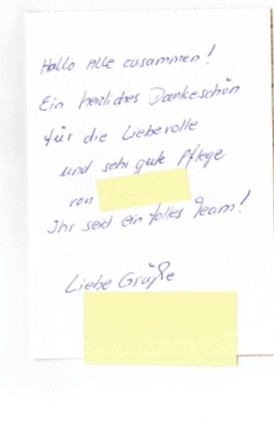 Hallo Alle zusammen!
Ein herzliches Dankeschön
für die Liebevolle
und sehr gute Pflege
von
Ihr seid ein tolles Team!
Liebe Grüße